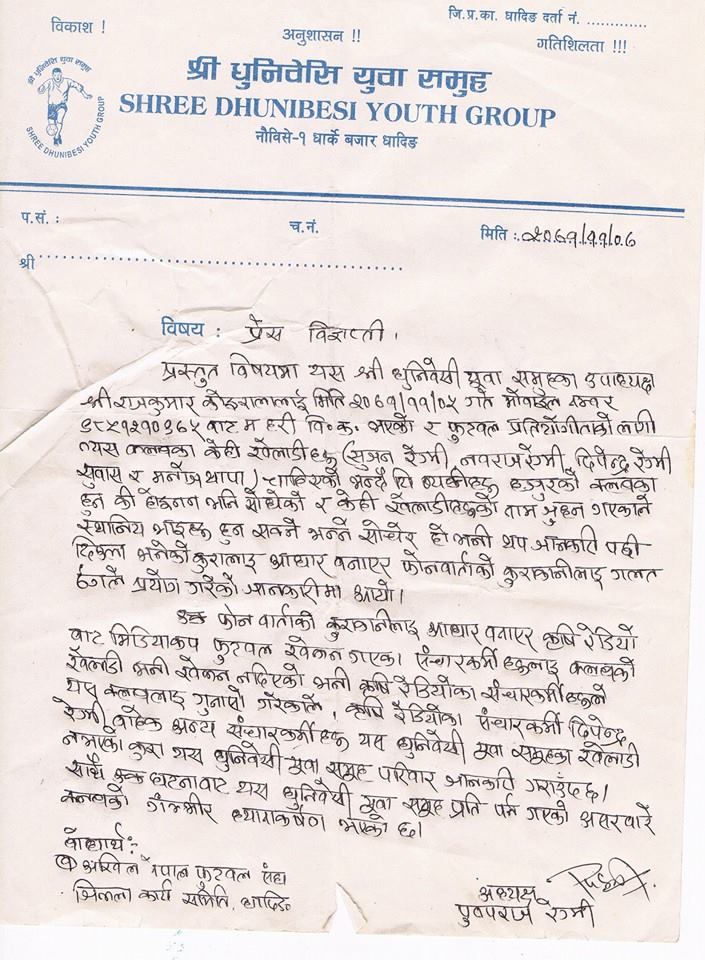 विकाश !
अनुशासन !!
जि.प्र.का. धादिङ दर्ता नं. .............
गतिशिलता !!!
श्री धुनिवेसि युवा समुह
SHREE DHUNIBESI YOUTH GROUP
श्री धुनिवेसि युवा समुह
SHREE DHUNIBESI YOUTH GROUP
नौविसे-१ धार्के बजार धादिङ
प.सं. :
च.नं.
मिति : २०६९/११/०६
श्री
विषय : प्रेस विज्ञप्ती ।
प्रस्तुत विषयमा यस श्री धुनिवेसी युवा समुहका उपाध्यक्ष
श्री राजकुमार कोइरालालाई मिति २०६९/११/०५ गते मोवाईल नम्बर
९८५१२१०३६५ बाट म हरी वि.क. भएको र फुटवल प्रतियोगीताको लागी
त्यस क्लवका केही खेलाडीहरू (सुजन रेग्मी, नवराज रेग्मी, दिपेन्द्र रेग्मी
सुवास र मनोज थापा) चाहिएको भन्दै यि व्यक्तीहरू हजुरको क्लवका
हुन की होइनन भनि सोधेको र केही खेलाडीहरूको नाम गएकाले
स्थानिय भाइहरू हुन सक्ने भन्ने सोचेर हो भनी थप जानकारी पछी
दिउला भनेको कुरालाइ आधार वनाएर फोनवार्ताको कुराकानीलाइ गलत
ढंगले प्रयोग गरेको जानकारीमा आयो ।
फोन वार्ताको कुराकानीलाइ आधार वनाएर कृषि रेडियो
वाट मिडियाकप फुटवल खेलन गएका संचारकर्मी हरूलाइ क्लवको
खेलाडी भनी खेलन नदिएको भनी कृषि रेडियोका संचारकर्मी हरूले
यस क्लवलाइ गुनासो गरेकाले, कृषि रेडियोका संचारकर्मी दिपेन्द्र
रेग्मी वाहेक अन्य संचारकर्मी हरू यस धुनिवेसी युवा समुहका खेलाडी
नभएको कुरा यस धुनिवेसी युवा समुह परिवार जानकारी गराउँदछ ।
साथै उक्त घटनावाट यस धुनिवेसी युवा समुह प्रति पर्न गएको असरवारे
क्लवको गंम्भीर ध्यानाकर्षण भएको छ ।
वोधार्थ :
अखिल नेपाल फुटवल संघ
जिल्ला कार्य समिति, धादिङ
अध्यक्ष
रेग्मी